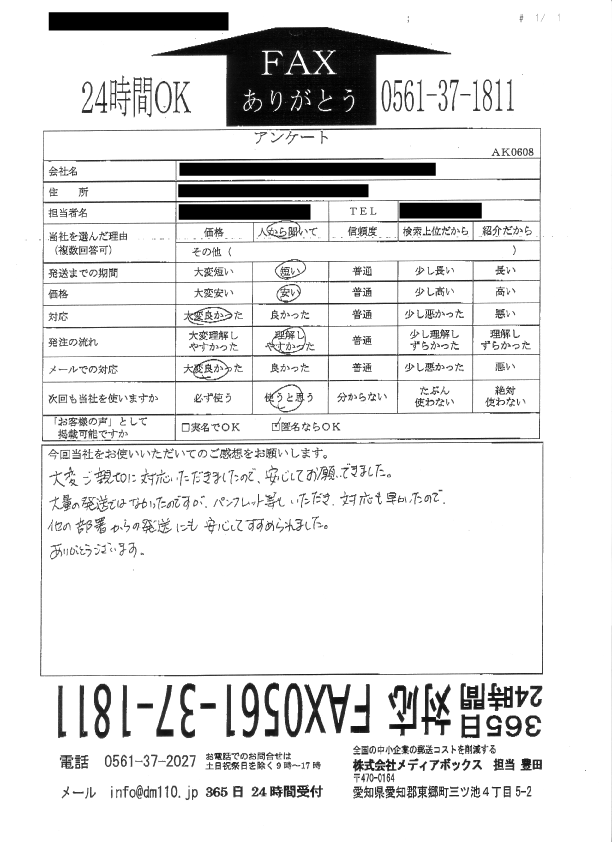 # 1/ 1
FAX
ありがとう
24時間OK
0561-37-1811
アンケート
AK0608
会社名
住 所
担当者名 TEL
当社を選んだ理由 (複数回答可) 価格 人から聞いて 信頼度 検索上位だから 紹介だから
その他 ( )
発送までの期間 大変短い 短い 普通 少し長い 長い
価格 大変安い 安い 普通 少し高い 高い
対応 大変良かった 良かった 普通 少し悪かった 悪い
発注の流れ 大変理解しやすかった 理解しやすかった 普通 少し理解しずらかった 理解しずらかった
メールでの対応 大変良かった 良かった 普通 少し悪かった 悪い
次回も当社を使いますか 必ず使う 使うと思う 分からない たぶん使わない 絶対使わない
「お客様の声」として掲載可能ですか □実名でOK ☑匿名ならOK
今回当社をお使いいただいてのご感想をお願いします。
大変ご親切に対応いただきましたので、安心してお願いできました。
大量の発送ではなかったのですが、パンフレット等もいただき、対応も早かったので、
他の部署からの発送にも安心してすすめられました。
ありがとうございます。
365日
24時間 対応 FAX0561-37-1811
電話 0561-37-2027 お電話でのお問合せは
土日祝祭日を除く9時〜17時
メール info@dm110.jp 365日 24時間受付
全国の中小企業の郵送コストを削減する
株式会社メディアボックス 担当 豊田
〒470-0164
愛知県愛知郡東郷町三ツ池4丁目5-2